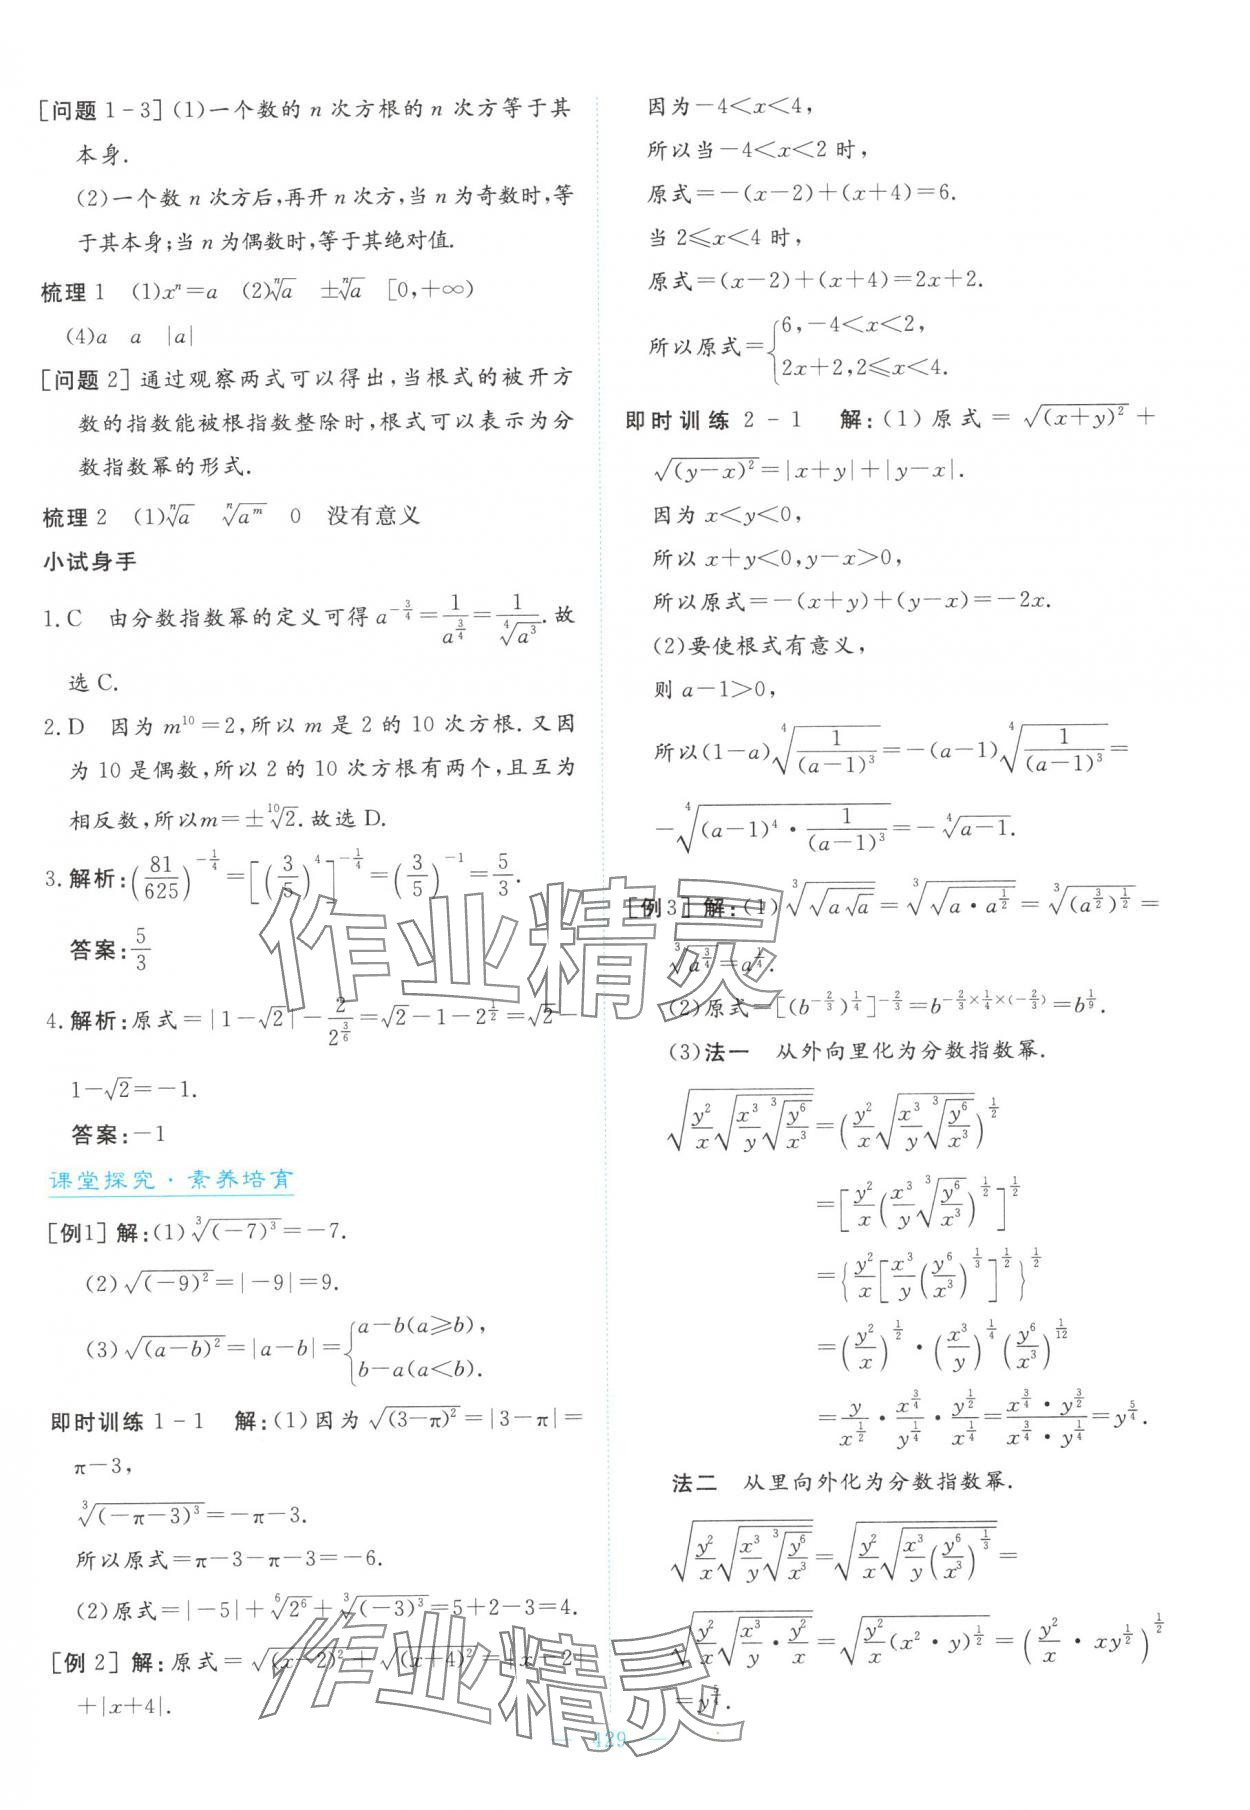 [问题1-3](1)一个数的 n 次方根的 n 次方等于其
本身.
(2)一个数 n 次方后,再开 n 次方,当 n 为奇数时,等
于其本身;当 n 为偶数时,等于其绝对值.
梳理1 (1)xⁿ=a (2)ⁿ√a ±ⁿ√a [0,+∞)
(4)a a |a|
[问题2]通过观察两式可以得出,当根式的被开方
数的指数能被根指数整除时,根式可以表示为分
数指数幂的形式.
梳理2 (1)ⁿ√a ⁿ√(a^m) 0 没有意义
小试身手
1.C 由分数指数幂的定义可得 a^(-3/4)=1/a^(3/4)=1/⁴√(a³).故
选 C.
2.D 因为 m¹⁰=2,所以 m 是 2 的 10 次方根.又因
为 10 是偶数,所以 2 的 10 次方根有两个,且互为
相反数,所以m=±¹⁰√2.故选 D.
3.解析:(81/625)^(-1/4)=[(3/5)⁴]^(-1/4)=(3/5)^(-1)=5/3.
答案:5/3
4.解析:原式=|1-√2|-2/2^(3/6)=√2-1-2^(1/2)=√2-
1-√2=-1.
答案:-1
课堂探究·素养培育
[例1]解:(1)³√((-7)³)=-7.
(2)√((-9)²)=|-9|=9.
(3)√((a-b)²)=|a-b|={a-b(a≥b),
b-a(a<b).
即时训练1-1 解:(1)因为 √((3-π)²)=|3-π|=
π-3,
³√((-π-3)³)=-π-3.
所以原式=π-3-π-3=-6.
(2)原式=|-5|+⁶√(2⁶)+³√((-3)³)=5+2-3=4.
[例2]解:原式=√((x-2)²)+√((x+4)²)=|x-2|
+|x+4|.
因为-4<x<4,
所以当-4<x<2 时,
原式=-(x-2)+(x+4)=6.
当 2≤x<4 时,
原式=(x-2)+(x+4)=2x+2.
所以原式={6,-4<x<2,
2x+2,2≤x<4.
即时训练2-1 解:(1)原式=√((x+y)²)+
√((y-x)²)=|x+y|+|y-x|.
因为 x<y<0,
所以 x+y<0,y-x>0,
所以原式=-(x+y)+(y-x)=-2x.
(2)要使根式有意义,
则 a-1>0,
所以(1-a)⁴√(1/(a-1)³)=-(a-1)⁴√(1/(a-1)³)=
-⁴√((a-1)⁴·1/(a-1)³)=-⁴√(a-1).
[例3]解:(1)³√(√(a√a))=³√(√(a·a^(1/2)))=³√((a^(3/2))^(1/2))=
³√(a^(3/4))=a^(1/4).
(2)原式=[(b^(-2/3))^(1/4)]^(-2/3)=b^(-2/3×1/4×(-2/3))=b^(1/9).
(3)法一 从外向里化为分数指数幂.
√(y²/x √(x³/y ³√(y⁶/x³)))=(y²/x √(x³/y ³√(y⁶/x³)))^(1/2)
=[y²/x(x³/y ³√(y⁶/x³))^(1/2)]^(1/2)
={y²/x[x³/y(y⁶/x³)^(1/3)]^(1/2)}^(1/2)
=(y²/x)^(1/2)·(x³/y)^(1/4)(y⁶/x³)^(1/12)
=y/x^(1/2)·x^(3/4)/y^(1/4)·y^(1/2)/x^(1/4)=(x^(3/4)·y^(3/2))/(x^(3/4)·y^(1/4))=y^(5/4).
法二 从里向外化为分数指数幂.
√(y²/x √(x³/y ³√(y⁶/x³)))=√(y²/x √(x³/y (y⁶/x³)^(1/3)))=
√(y²/x √(x³/y·y²/x))=√(y²/x(x²·y)^(1/2))=(y²/x·xy^(1/2))^(1/2)
=y^(5/4).
429
作业精灵
作业精灵